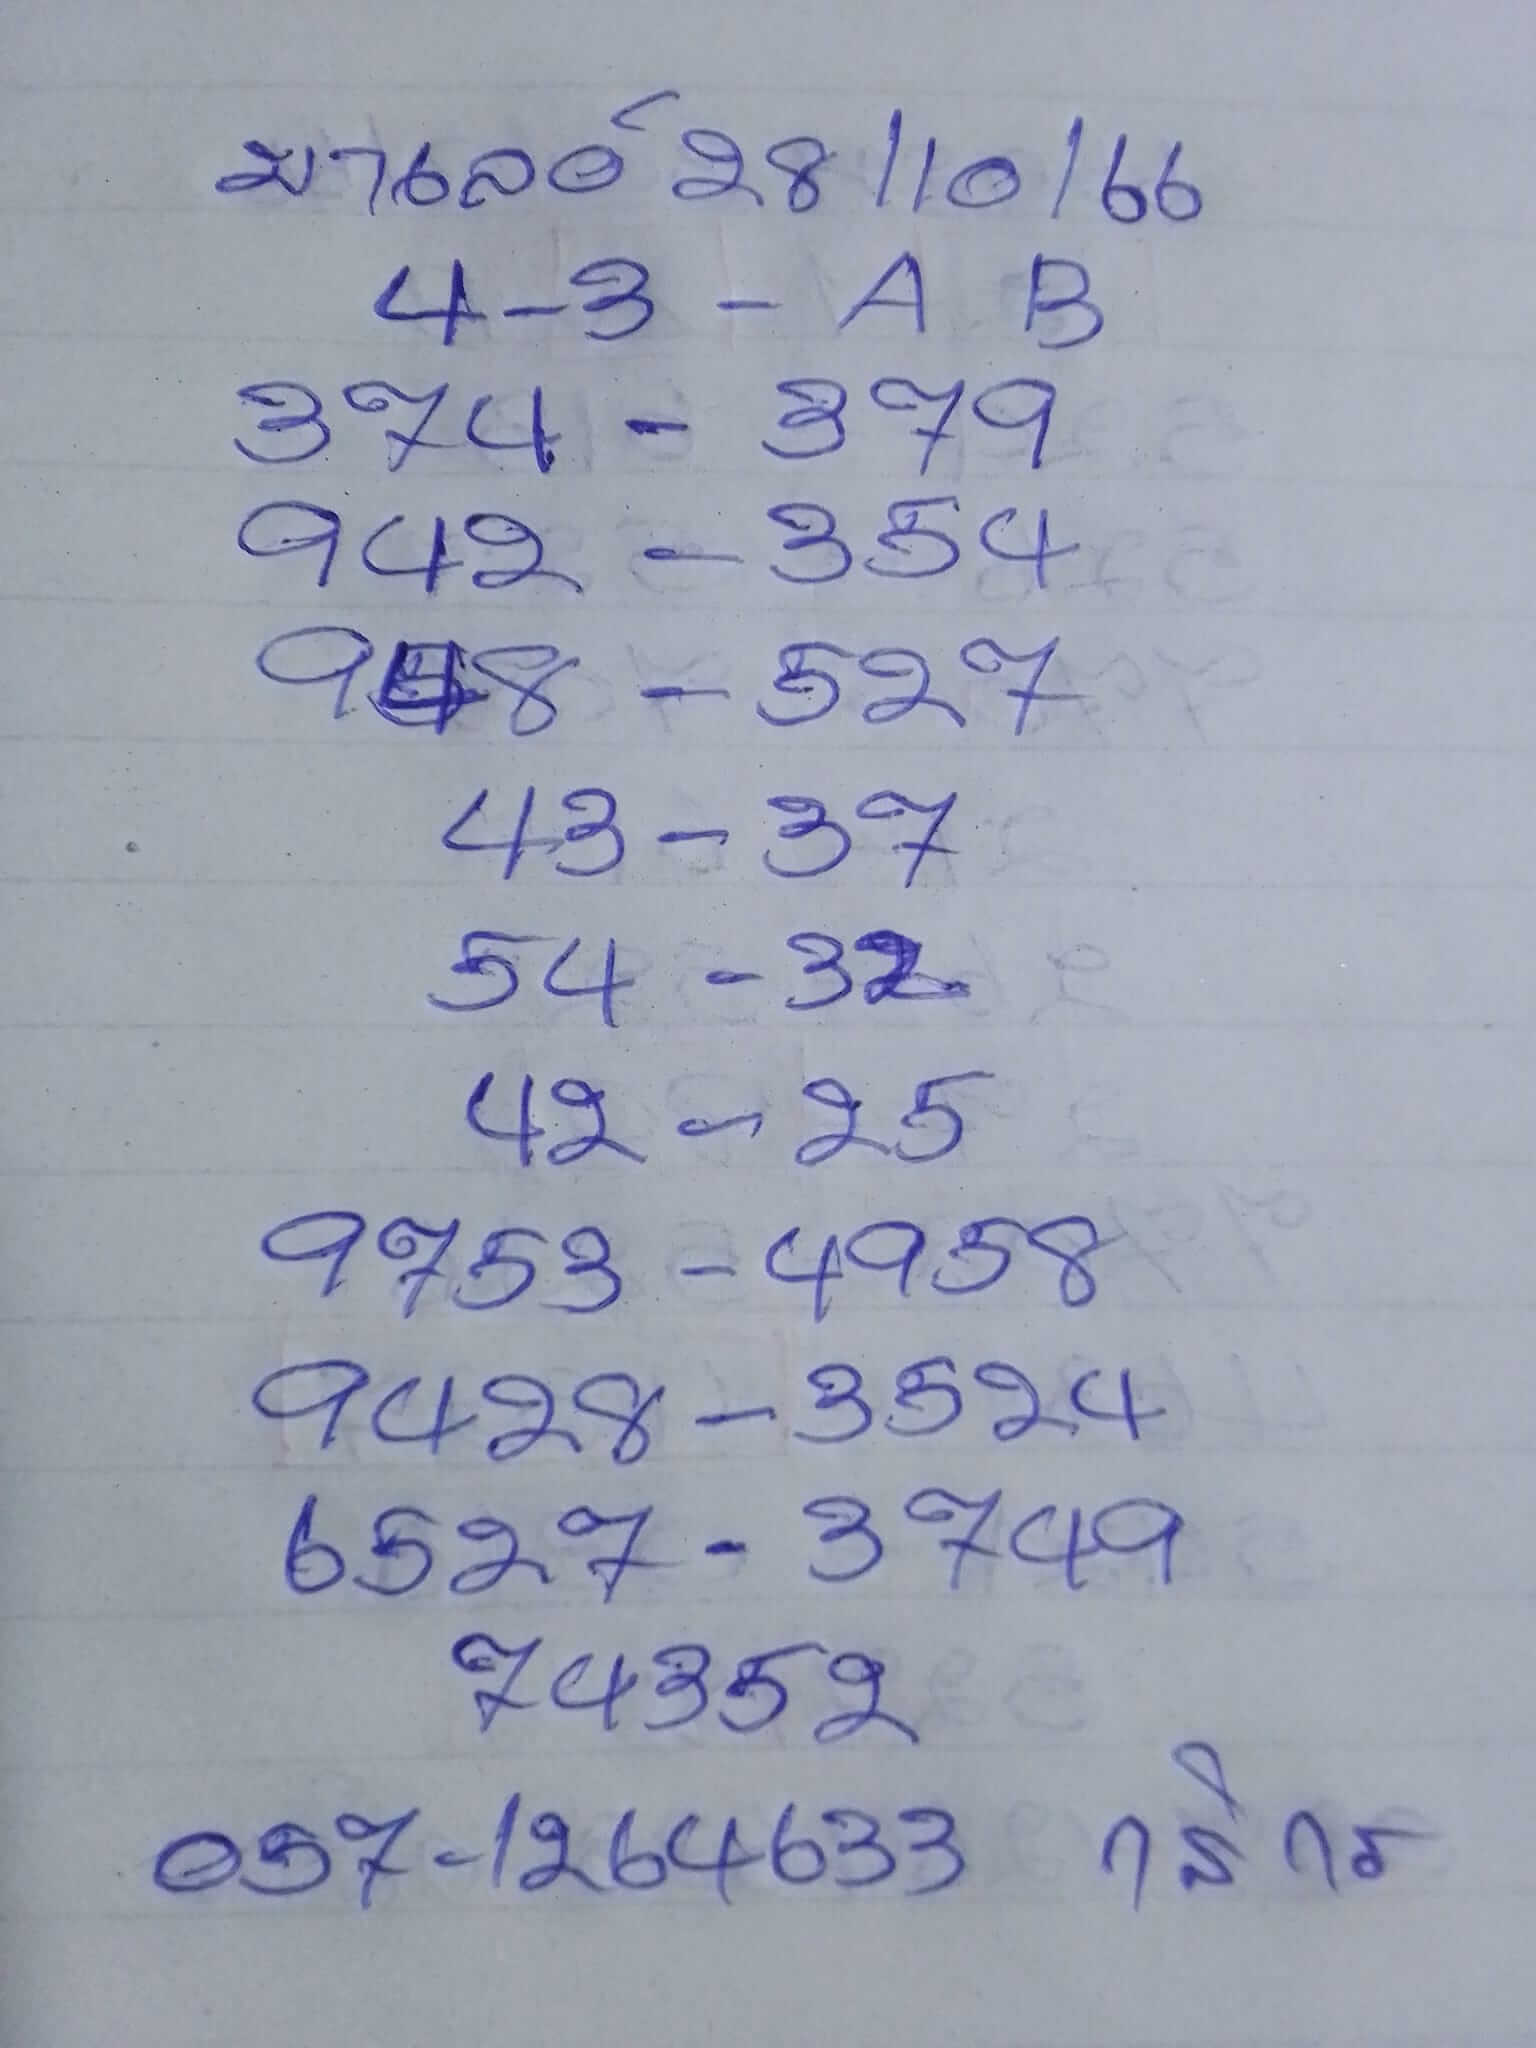 มาเลย์ 28/10/66
4-3 - A B
374 - 379
942 - 354
948 - 527
43 - 37
54 - 32
42 - 25
9753 - 4958
9428 - 3524
6527 - 3749
74352
057-1264633